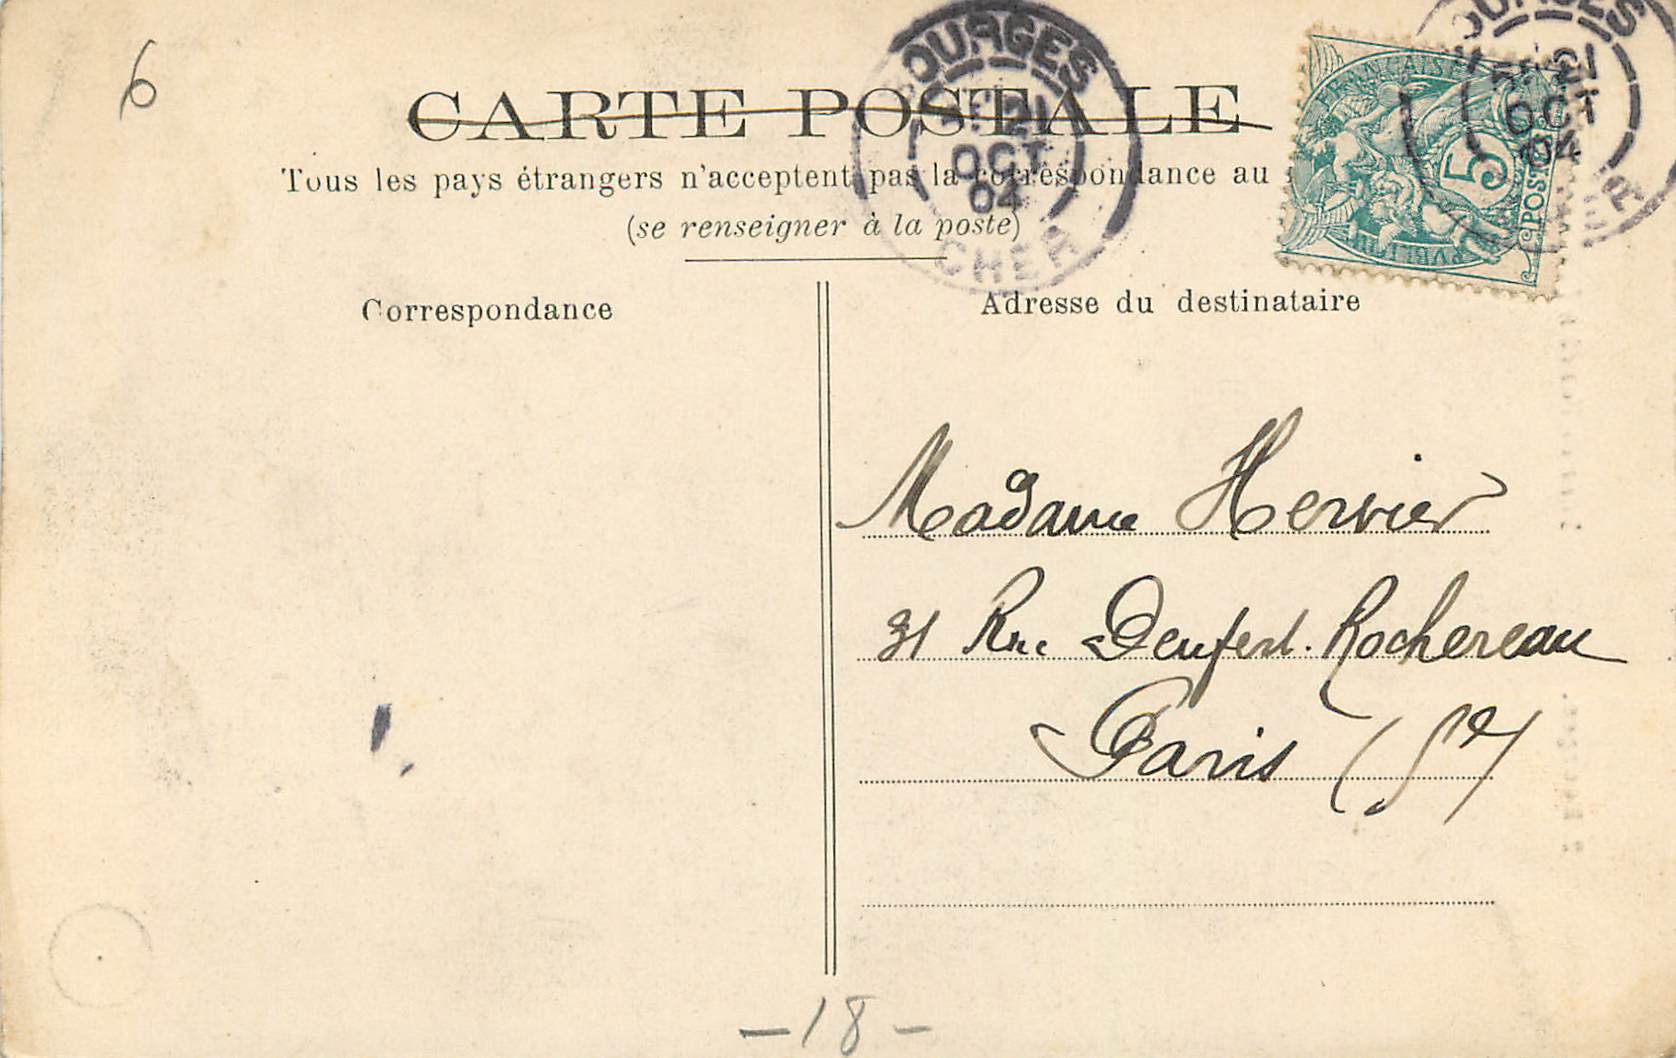 6
CARTE POSTALE
Tous les pays étrangers n'acceptent pas la correspondance au
(se renseigner à la poste)
BOURGES
21
OCT
04
CHER
FRANÇAISE
5
POSTES
BOURGES
21
OCT
04
CHER
Correspondance
Adresse du destinataire
Madame Hervier
31 Rue Denfert-Rochereau
Paris (5e)
-18-